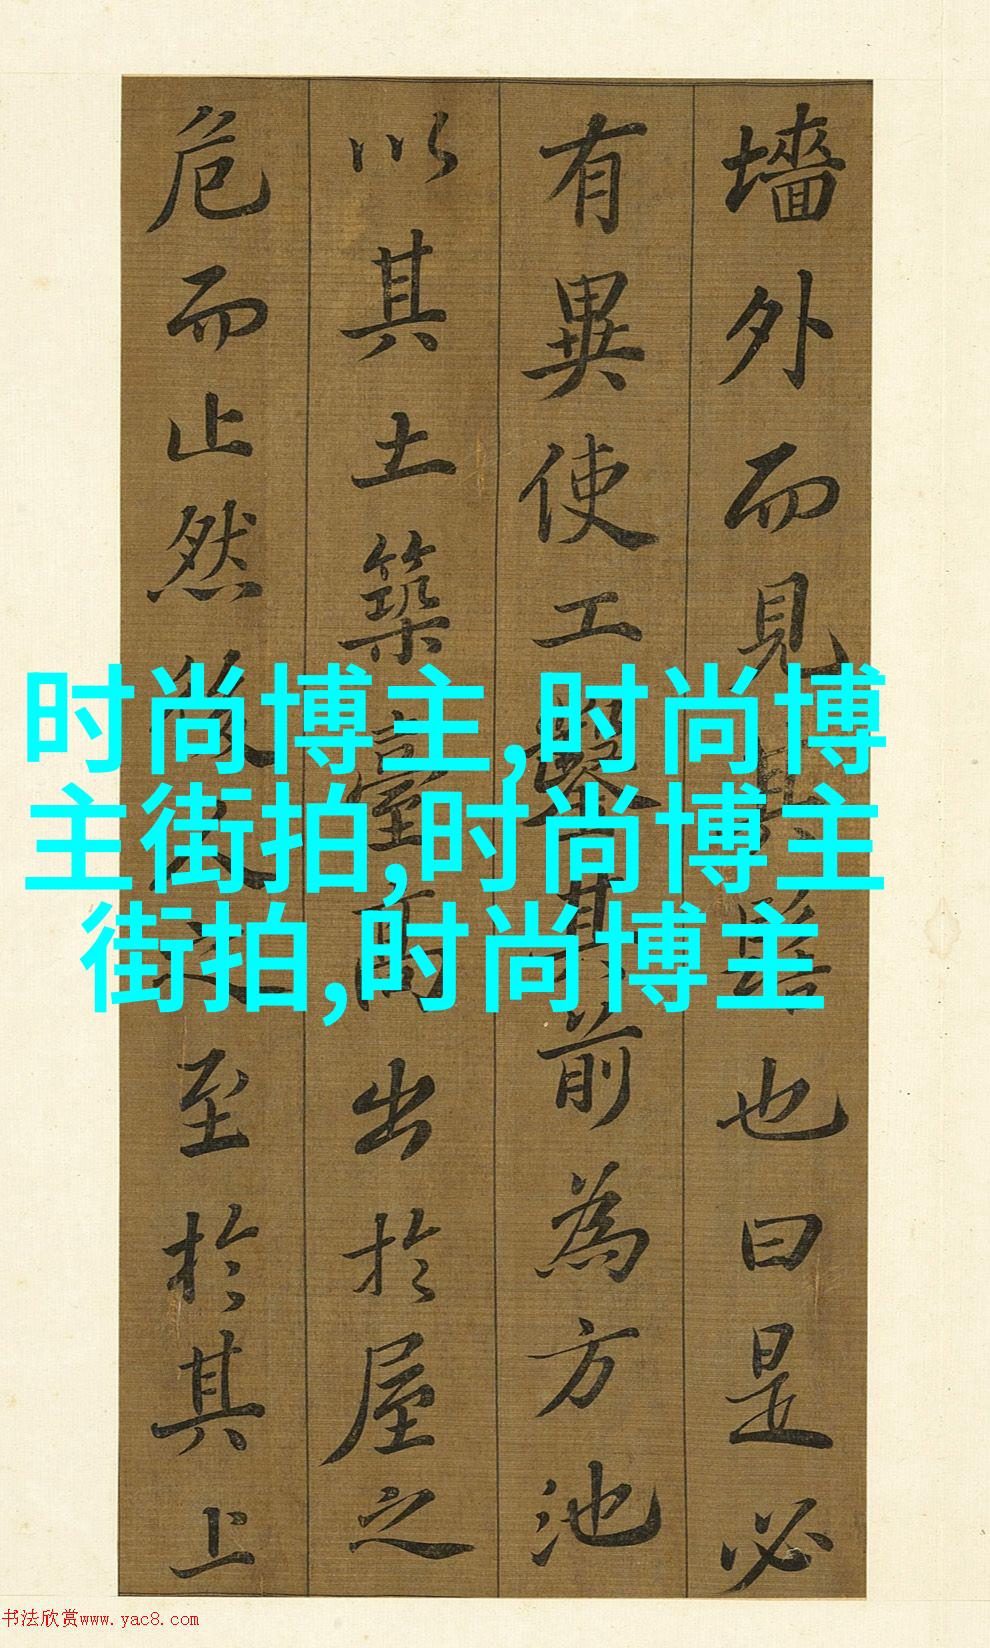 墻外而見其髻也曰是必
有異使工鑿其前為方池
以其土築臺高出於屋之
危而止然後人之至於其上
时尚博主,时尚博
主街拍,时尚博主
街拍,时尚博主
书法欣赏www.yac8.com